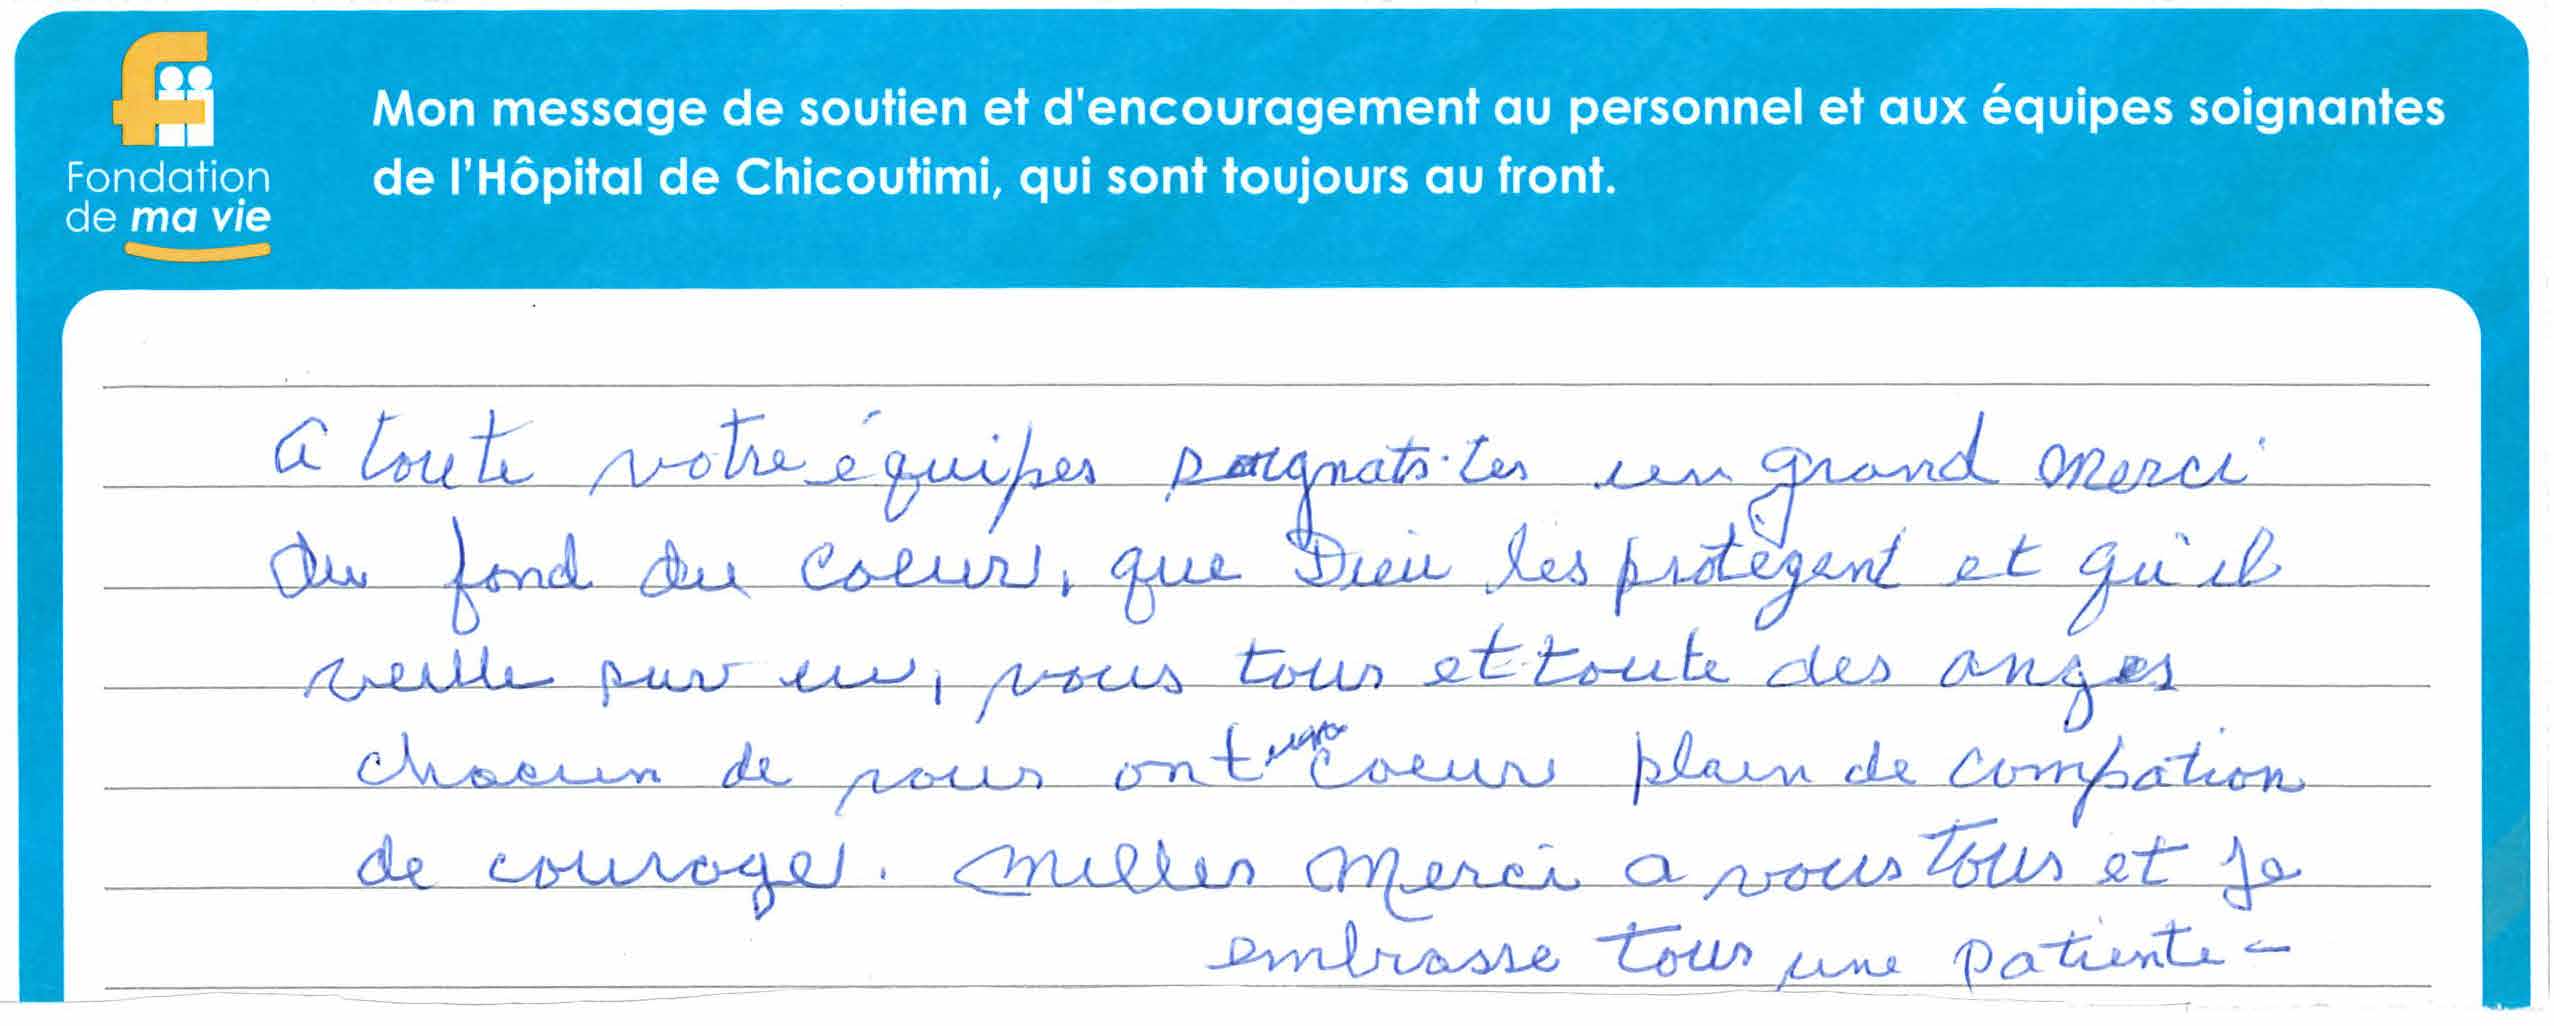 Fondation
de ma vie
Mon message de soutien et d'encouragement au personnel et aux équipes soignantes
de l'Hôpital de Chicoutimi, qui sont toujours au front.
A toute votre équipes soignats·tes un grand merci
du fond du coeur, que Dieu les protègent et qu'il
veille sur eu, vous tous et toute des anges
chacun de vous ont un coeur plain de compation
de courage. Milles Merci a vous Tous et Je
embrasse tous une patiente -